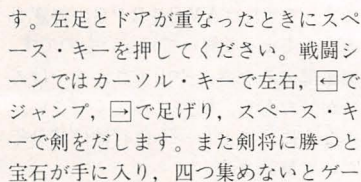 す。左足とドアが重なったときにスペ
ース・キーを押してください。戦闘シ
ーンではカーソル・キーで左右，←で
ジャンプ，→で足げり，スペース・キ
ーで剣をだします。また剣将に勝つと
宝石が手に入り，四つ集めないとゲー